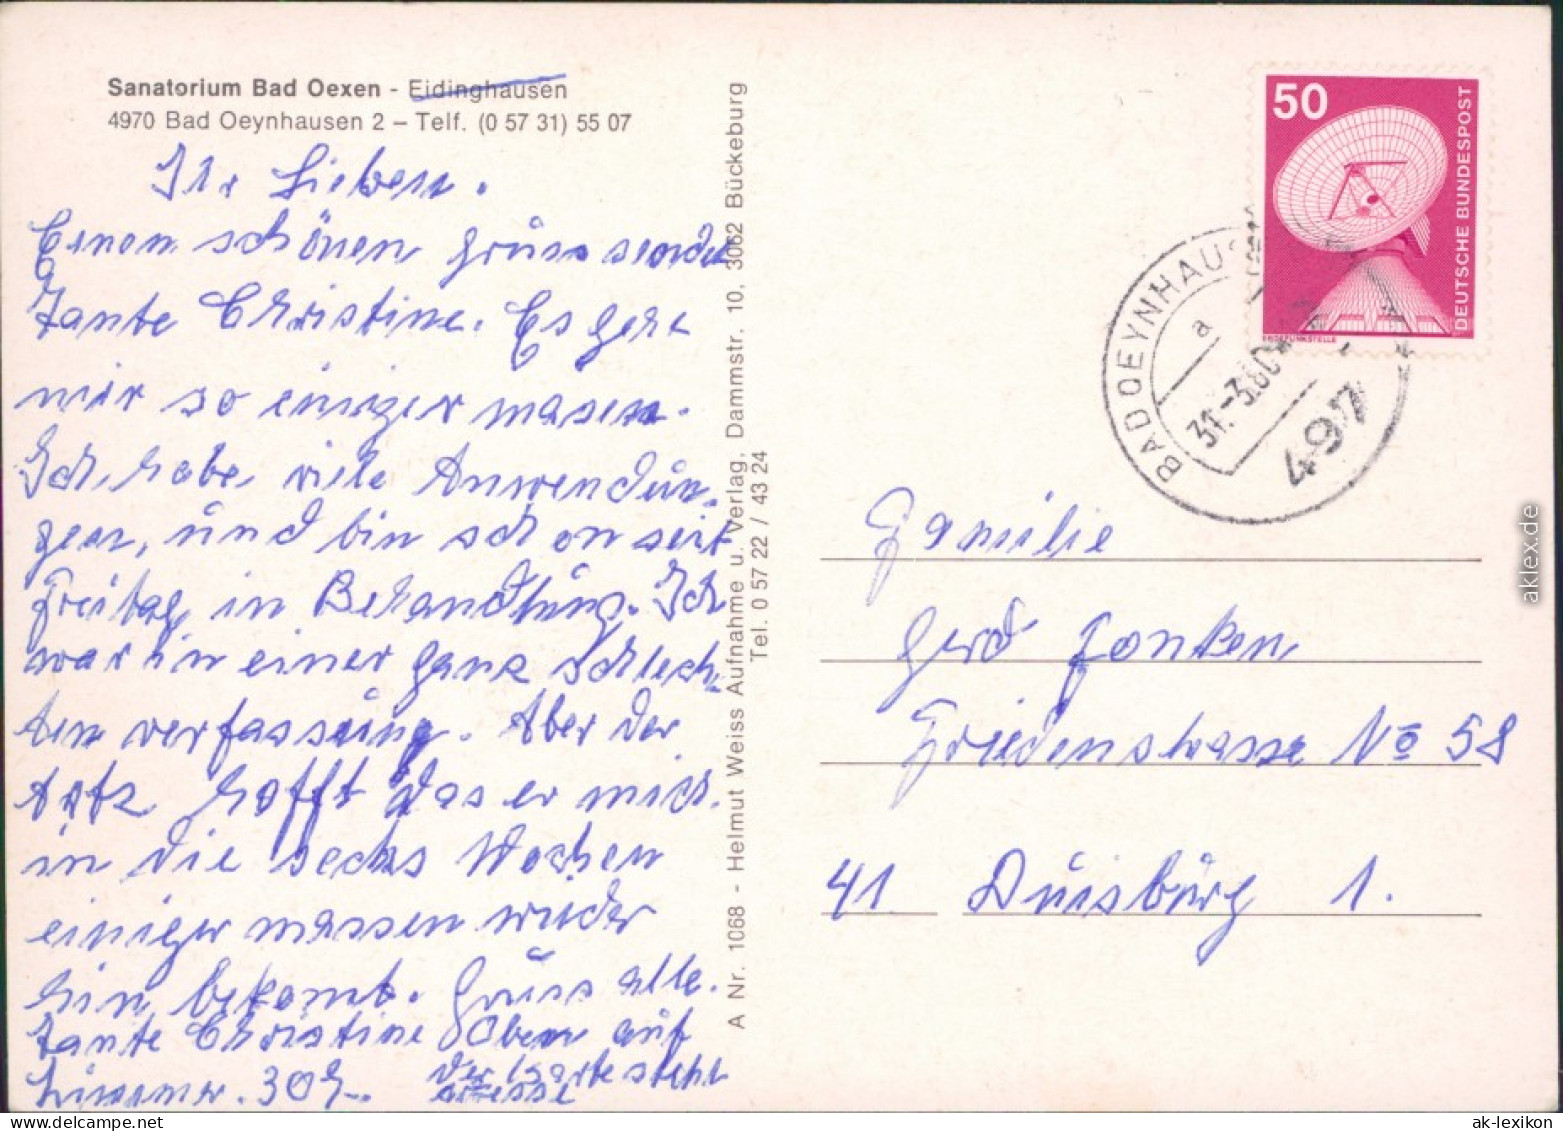 Sanatorium Bad Oexen - Eidinghausen
4970 Bad Oeynhausen 2 – Telf. (0 57 31) 55 07
Ihr Lieben.
Einen schönen grüss sendet
Tante Christine. Es geht
mir so einiger masen.
Ich habe viele Anwendün-
gen, ünd bin schon seit
Freitag in Behandlüng. Ich
war in einer ganz schlech-
ten verfassüng. Aber der
Artz hofft das er mich
in die sechs Wochen
einiger massen wieder
hin bekomt. Grüss alle.
Tante Christine Oben aüf
Zimmer. 309- der Karte steht
Adresse
A Nr. 1068 - Helmut Weiss Aufnahme u. Verlag, Dammstr. 10, 3062 Bückeburg
Tel. 0 57 22 / 43 24
50
DEUTSCHE BUNDESPOST
ERDEFUNKSTELLE
BAD OEYNHAUS
a
31.-3.80
497
Familie
Gerd Jonken
Friedenstrasse No 58
41 Düisbürg 1.
aklex.de
ak-lexikon